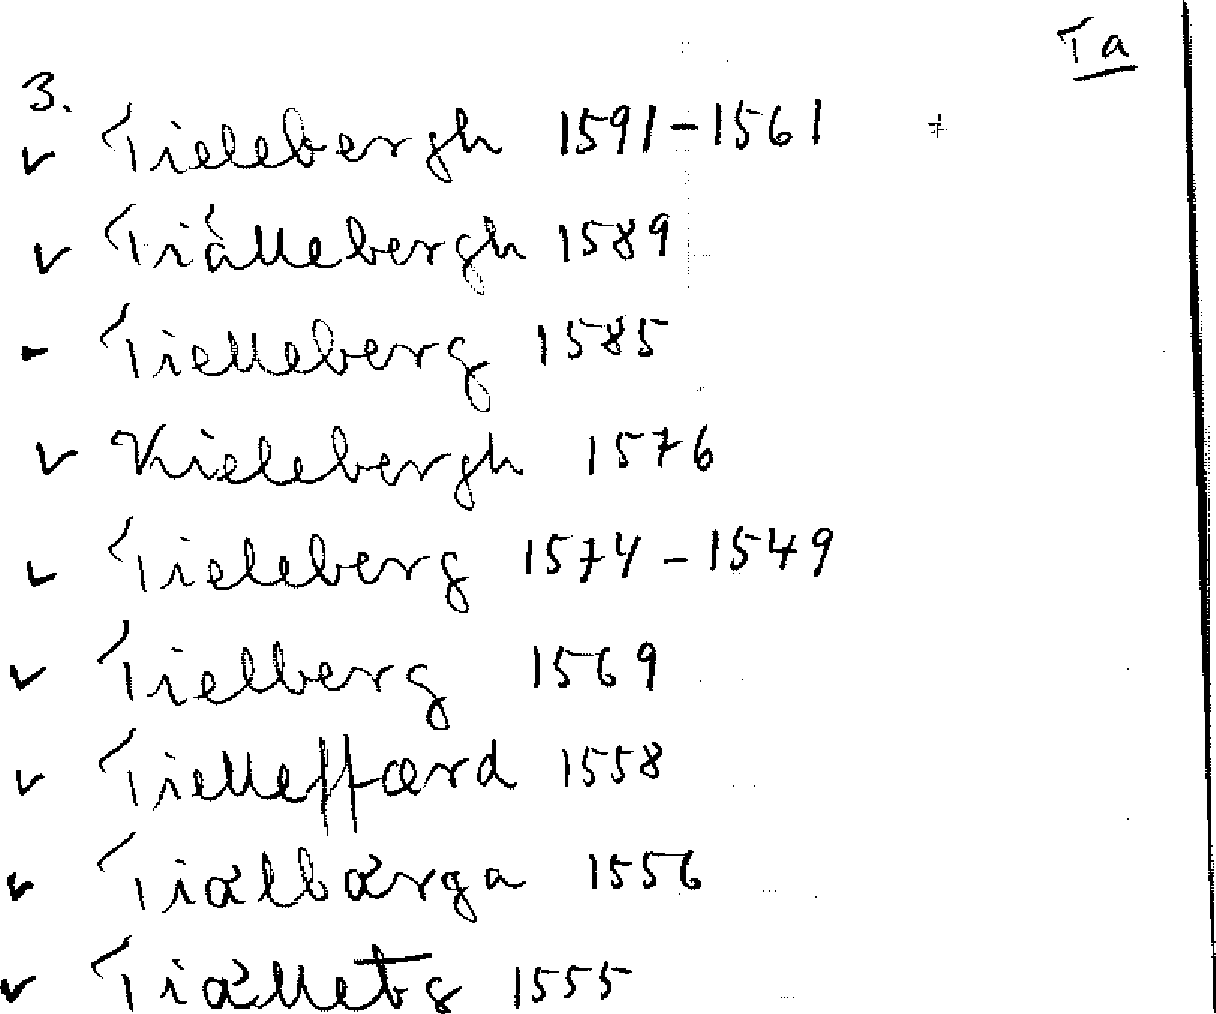 Ta
3.
✓ Tielebergh 1591-1561 +
✓ Tiällebergh 1589
- Tielleberg 1585
✓ Kielebergh 1576
✓ Tieleberg 1574-1549
✓ Tielberg 1569
✓ Tielleffærd 1558
✓ Tiælbærga 1556
✓ Tiælletbg 1555